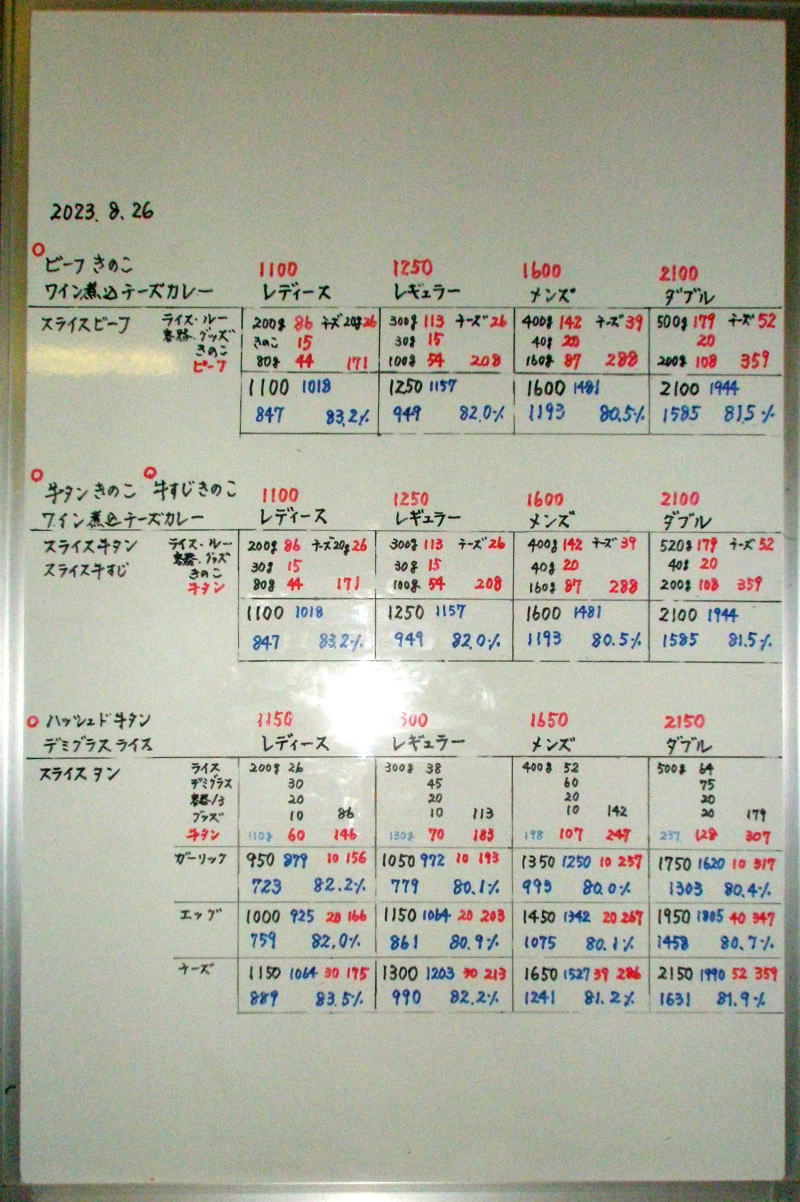 2023. 8. 26
ビーフきのこ 1100 1250 1600 2100
ワイン煮込チーズカレー レディース レギュラー メンズ ダブル
スライスビーフ ライス・ルー 200g 86 チーズ20g26 300g 113 チーズ26 400g 142 チーズ39 500g 179 チーズ52
容器・グッズ
きのこ きのこ 15 30g 15 40g 20 20
ビーフ 80g 44 171 100g 54 208 160g 87 288 200g 108 359
1100 1018 1250 1157 1600 1481 2100 1944
847 83.2% 949 82.0% 1193 80.5% 1585 81.5%
牛タンきのこ 牛すじきのこ 1100 1250 1600 2100
ワイン煮込チーズカレー レディース レギュラー メンズ ダブル
スライス牛タン ライス・ルー 200g 86 チーズ20g26 300g 113 チーズ26 400g 142 チーズ39 520g 179 チーズ52
容器・グッズ
スライス牛すじ きのこ 30g 15 30g 15 40g 20 40g 20
牛タン 80g 44 171 100g 54 208 160g 87 288 200g 108 359
1100 1018 1250 1157 1600 1481 2100 1944
847 83.2% 949 82.0% 1193 80.5% 1585 81.5%
ハッシュド牛タン 1150 300 1650 2150
デミグラスライス レディース レギュラー メンズ ダブル
スライスタン ライス 200g 26 300g 38 400g 52 500g 64
デミグラス 30 45 60 75
容器/ヨ 20 20 20 20
グッズ 10 86 10 113 10 142 20 179
牛タン 110g 60 146 130g 70 183 198 107 247 237 128 307
ガーリック 950 879 10 156 1050 972 10 193 1350 1250 10 257 1750 1620 10 317
723 82.2% 779 80.1% 993 80.0% 1303 80.4%
エッグ 1000 925 20 166 1150 1064 20 203 1450 1342 20 267 1950 1805 40 347
759 82.0% 861 80.9% 1075 80.1% 1458 80.7%
チーズ 1150 1064 30 175 1300 1203 30 213 1650 1527 39 286 2150 1990 52 359
889 83.5% 990 82.2% 1241 81.2% 1631 81.9%